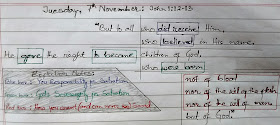 Tuesday, 7th November: John 1:12-13
"But to all who did receive Him,
who believed in His name,
He gave the right to become children of God,
who were born
not of blood
nor of the will of the flesh
nor of the will of man,
but of God."
Repetition Notes:
Responsibility in Salvation
God's Sovereignty in Salvation
How you aren't (and can now say) Saved